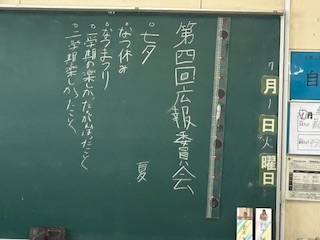 7月1日火曜日
第四回広報委員会
夏
○七夕
○なつ休み
○なつまつり
○一学期の楽しかったながばったこと
○二学期楽しかったこと
自